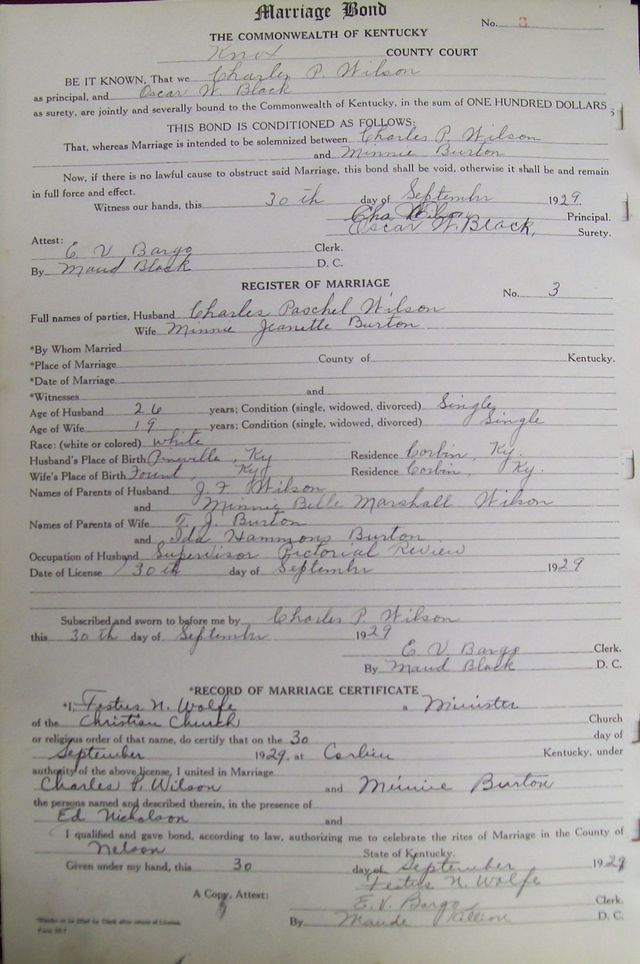 Marriage Bond
No. 3
THE COMMONWEALTH OF KENTUCKY
Knox COUNTY COURT
BE IT KNOWN, That we Charles P. Wilson
as principal, and Oscar W. Black
as surety, are jointly and severally bound to the Commonwealth of Kentucky, in the sum of ONE HUNDRED DOLLARS
THIS BOND IS CONDITIONED AS FOLLOWS:
That, whereas Marriage is intended to be solemnized between Charles P. Wilson
and Minnie Burton
Now, if there is no lawful cause to obstruct said Marriage, this bond shall be void, otherwise it shall be and remain
in full force and effect.
Witness our hands, this 30th day of September 1929.
Cha Wilson Principal.
Oscar W. Black, Surety.
Attest:
E. V Bargo Clerk.
By Maud Black D. C.
REGISTER OF MARRIAGE
No. 3
Full names of parties, Husband Charles Paschel Wilson
Wife Minnie Jeanette Burton
*By Whom Married
*Place of Marriage County of Kentucky.
*Date of Marriage
*Witnesses and
Age of Husband 26 years; Condition (single, widowed, divorced) Single
Age of Wife 19 years; Condition (single, widowed, divorced) Single
Race: (white or colored) white
Husband's Place of Birth Pineville, Ky Residence Corbin, Ky.
Wife's Place of Birth Fount, Ky Residence Corbin, Ky.
Names of Parents of Husband J. F Wilson
and Minnie Belle Marshall Wilson
Names of Parents of Wife T. J. Burton
and Ida Hammons Burton
Occupation of Husband Supervisor Pictorial Review
Date of License 30th day of September 1929
Subscribed and sworn to before me by Charles P. Wilson
this 30th day of September 1929
E. V Bargo Clerk.
By Maud Black D. C.
*RECORD OF MARRIAGE CERTIFICATE
*I, Festus N. Wolfe a Minister
of the Christian Church Church
or religious order of that name, do certify that on the 30 day of
September 1929, at Corbin Kentucky, under
authority of the above license, I united in Marriage
Charles P. Wilson and Minnie Burton
the persons named and described therein, in the presence of
Ed Nicholson and
I qualified and gave bond, according to law, authorizing me to celebrate the rites of Marriage in the County of
Nelson State of Kentucky.
Given under my hand, this 30 day of September 1929
Festus N. Wolfe
A Copy, Attest: E. V. Bargo Clerk.
By Maude D. C.